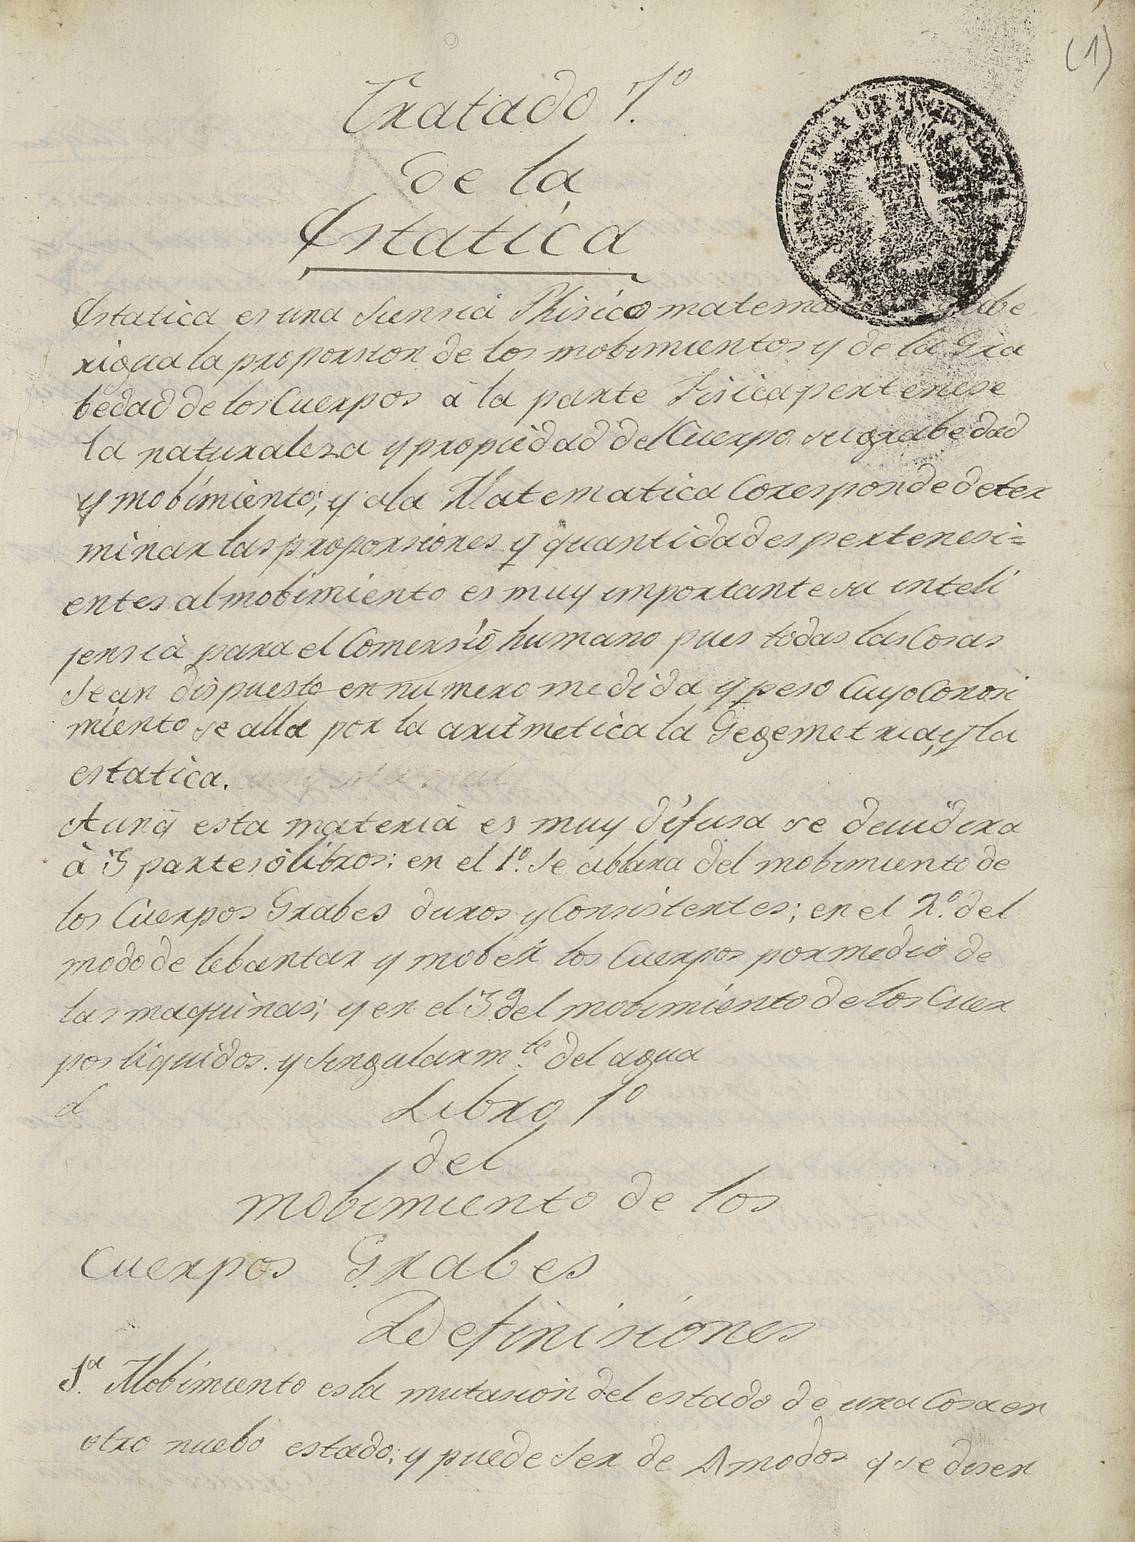 (1)
Tratado 7º
de la
Estatica
Estatica es una siensia Phisico matema
rigua la proporsion de los mobimientos y de la Gra
bedad de los Cuerpos â la parte Fisica pertenese
la naturalesa y propiedad del Cuerpo su grabedad
y mobimiento; y ala Matematica Coresponde deter
minar las proporsiones y quantidades pertenesi=
entes al mobimiento es muy importante su inteli
jensia para el Comersio humano pues todas las Cosas
se an dispuesto en numero medida y peso Cuyo Conosi
miento se alla por la aritmetica la Gegemetria, y la
estatica.
Aunq̃ esta materia es muy difusa se deuidira
à 3 partes ô libros: en el 1º. se ablara del mobimiento de
los Cuerpos Grabes duros y Consistentes; en el 2º. del
modo de lebantar y mober los Cuerpos por medio de
las maquinas; y en el 3º del mobimiento de los Cuer
pos liquidos. y singularm.te del agua
Libro 1º
del
mobimiento de los
Cuerpos Grabes
Definisiones
1ª. Mobimiento es la mutasion del estado de una Cosa en
otro nuebo estado; y puede ser de 4 modos y se disen